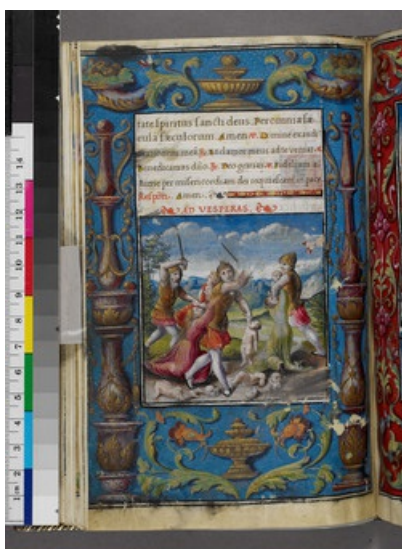 tate spiritus sancti deus. Per omnia sæ
cula sæculorum. Amen. Domine exaudi
orationem meã. Et clamor meus ad te veniat.
Benedicamus dño. Deo gratias. Fidelium a
nimæ per misericordiam dei requiescant in pace.
Respon. Amen.
AD VESPERAS.
14
13
12
11
10
9
8
7
6
5
4
3
2
1 cm